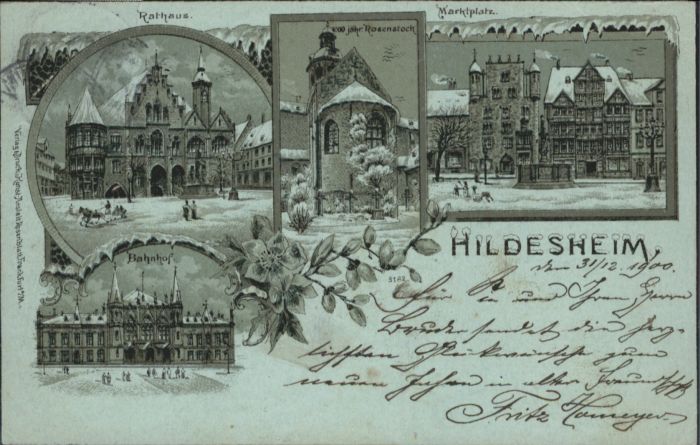 Rathaus.
1000 jähr. Rosenstock
Marktplatz.
Bahnhof.
HILDESHEIM,
den 31/12. 1900.
Für Sie und Ihren Herrn
Bruder sendet die herz-
lichsten Glückwünsche zum
neuen Jahre in alter Freundschaft
Fritz Homeyer.
5182